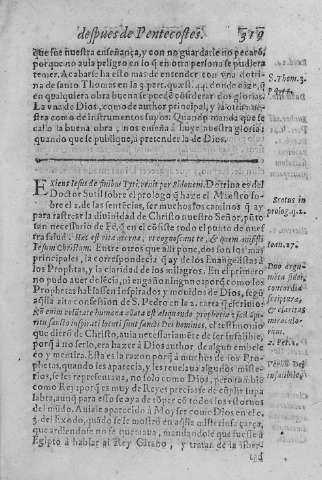 despues de Pentecostes. 319
que fue nuestra enseñança, y con no guardarle no pecarõ,
porque no auia peligro en lo q̃ en otra persona se pudiera
temer. Acabarse ha esto mas de entender con vna dotri
na de santo Thomas en la 3 part. quest. 44. donde dize, q̃
en qualquiera obra buena se puede cõsiderar dos glorias.
La vna de Dios, como de author principal, y la otra nue-
stra como de instrumentos suyos. Quando manda que se
calle la buena obra, nos enseña a huyr nuestra gloria:
quando que se publique, a pretender la de Dios.
S. Thom. 3.
p. q. 44.
EXiens Iesus de finibus Tyri venit per Sidonem. Dotrina es del
Doctor Sutil sobre el prologo q̃ haze el Maestro so-
bre el 2. de las sentẽcias, ser muchos los caminos q̃ ay
para rastrear la diuinidad de Christo nuestro Señor, pũto
tan necessario de Fé, q̃ en él consiste todo el punto de nues
tra salud. Hæc est vita æterna, vt cognoscant te, & quem misisti
Iesum Christum. Entre otros que alli pone, dos son los mas
principales, la correspondencia q̃ ay de los Euangelistas a
los Prophetas, y la claridad de los milagros. En el primero
no pudo auer dolécia, ni engaño alguno: porq̃ como los
Prophetas hablassen inspirados y mouidos de Dios, segũ
aq̃lla alta confession de S. Pedro en la 2. carta q̃ escriuio:
el testimonio
que dierõ de Christo, auia necessariamẽte de ser infalible,
porq̃ a no serlo, era hazer a Dios author de algun embele-
co y mentira. Esta es la razon porq̃ a muchos de los Pro-
phetas, quando les aparecia, y les reuelaua algunos miste-
rios, se les representaua, no solo como Dios, pero tambiẽ
como Rey: porq̃ es muy de Reyes preciarse de cũplir su pa
labra, aunq̃ para esso se aya de rõper cõ todos los estoruos
del mũdo. Auiale aparecido a Moysen como Dios en el c.
3. del Exodo, quãdo se le mostró en aq̃lla misteriosa çarça,
que ardiendose no se quemaua, mandandole que fuesse a
Egipto a hablar al Rey Gitano, y tratar de la liber-
tad
Scotus in
prolog. q. 2.
Ioan. 17.
Duo argu
mẽta fidei,
concordia
scripturæ,
& claritas
miraculo-
rum.
2. Pet. 1.
Verbũ Dei
infalibile,